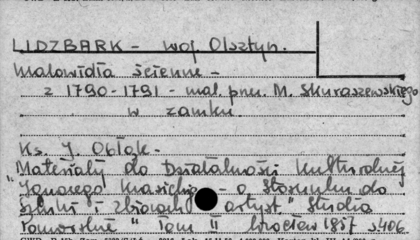 LIDZBARK - woj. Olsztyn.
Malowidła ścienne -
z 1790-1791 - mal. przez M. Skuraszewskiego
w zamku.
Ks. J. Obłąk -
"Materiały do Działalności kulturalnej
Ignacego Krasickiego - o stosunku do
sztuki i zbiorach artyst" Studia
" Tom II Wrocław 1957 s 406.